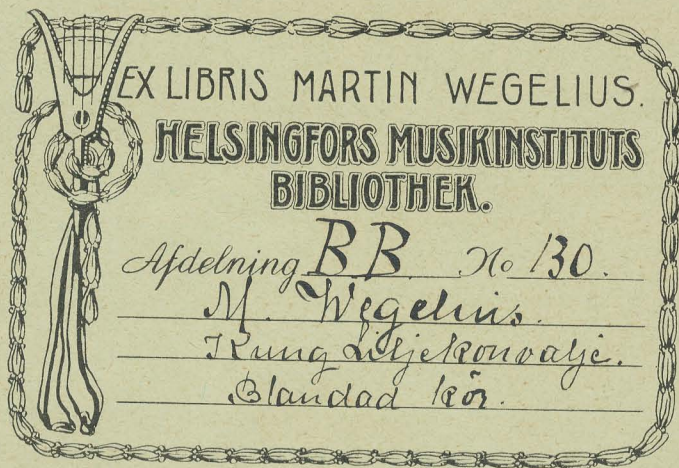 EX LIBRIS MARTIN WEGELIUS.
HELSINGFORS MUSIKINSTITUTS
BIBLIOTHEK.
Afdelning BB. No 130.
M. Wegelius.
Kung Liljekonvalje.
Blandad kör.